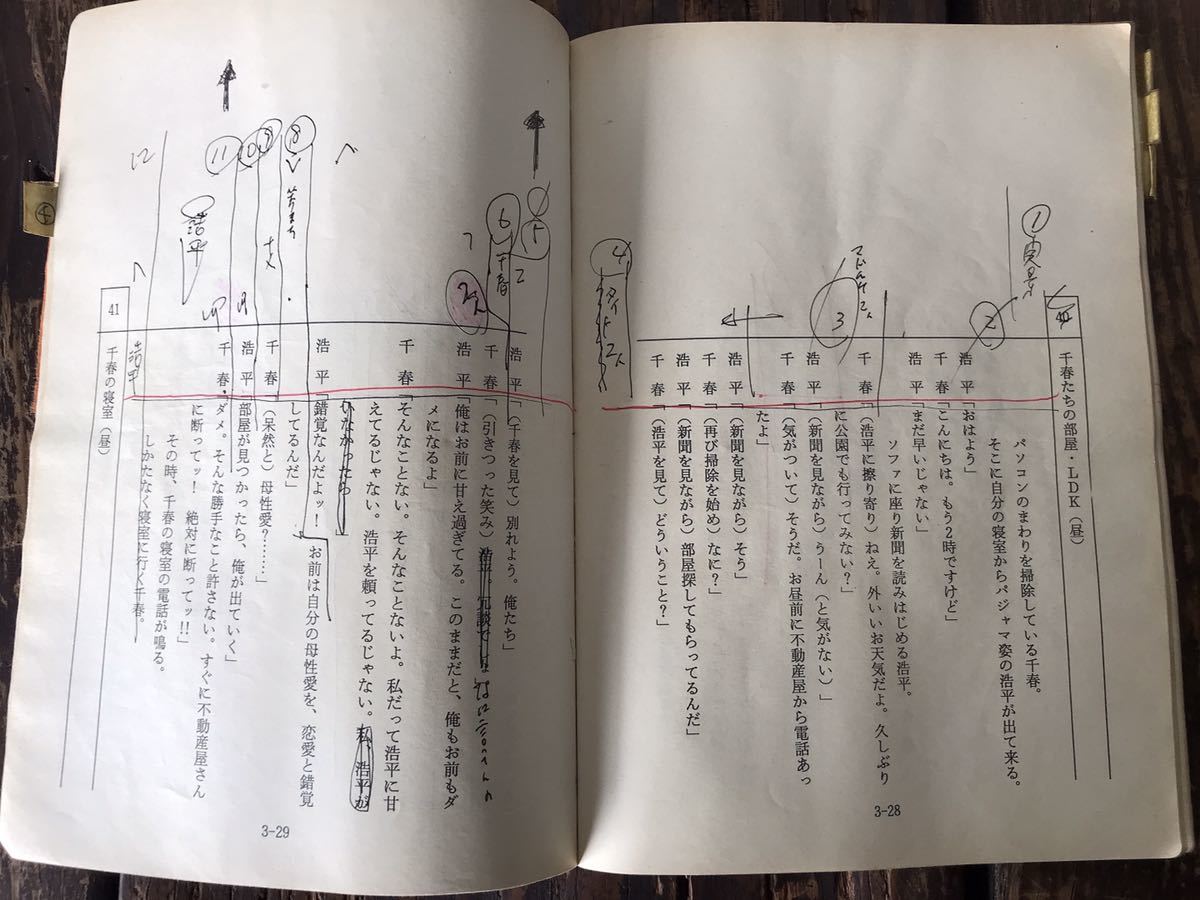 ① 実景
②
千春たちの部屋・LDK（昼）
パソコンのまわりを掃除している千春。
そこに自分の寝室からパジャマ姿の浩平が出て来る。
浩　平「おはよう」
千　春「こんにちは。もう２時ですけど」
浩　平「まだ早いじゃない」
ソファに座り新聞を読みはじめる浩平。
千　春「（浩平に擦り寄り）ねえ。外いいお天気だよ。久しぶり
に公園でも行ってみない？」
③
浩　平「（新聞を見ながら）うーん（と気がない）」
千　春「（気がついて）そうだ。お昼前に不動産屋から電話あっ
たよ」
浩　平「（新聞を見ながら）そう」
千　春「（再び掃除を始め）なに？」
浩　平「（新聞を見ながら）部屋探してもらってるんだ」
千　春「（浩平を見て）どういうこと？」
④
3-28
⑤
浩　平「（千春を見て）別れよう。俺たち」
⑥ 千春
千　春「（引きつった笑み）浩平。冗談でしょ」
浩　平「俺はお前に甘え過ぎてる。このままだと、俺もお前もダ
メになるよ」
千　春「そんなことない。そんなことないよ。私だって浩平に甘
えてるじゃない。浩平を頼ってるじゃない。私、浩平が
いなかったら
⑧
浩　平「錯覚なんだよッ！　お前は自分の母性愛を、恋愛と錯覚
してるんだ」
⑨
千　春「（呆然と）母性愛？……」
⑩
浩　平「部屋が見つかったら、俺が出ていく」
⑪
千　春「ダメ。そんな勝手なこと許さない。すぐに不動産屋さん
に断ってッ！　絶対に断ってッ!!」
浩平
その時、千春の寝室の電話が鳴る。
しかたなく寝室に行く千春。
12
浩平
41
千春の寝室（昼）
3-29
④